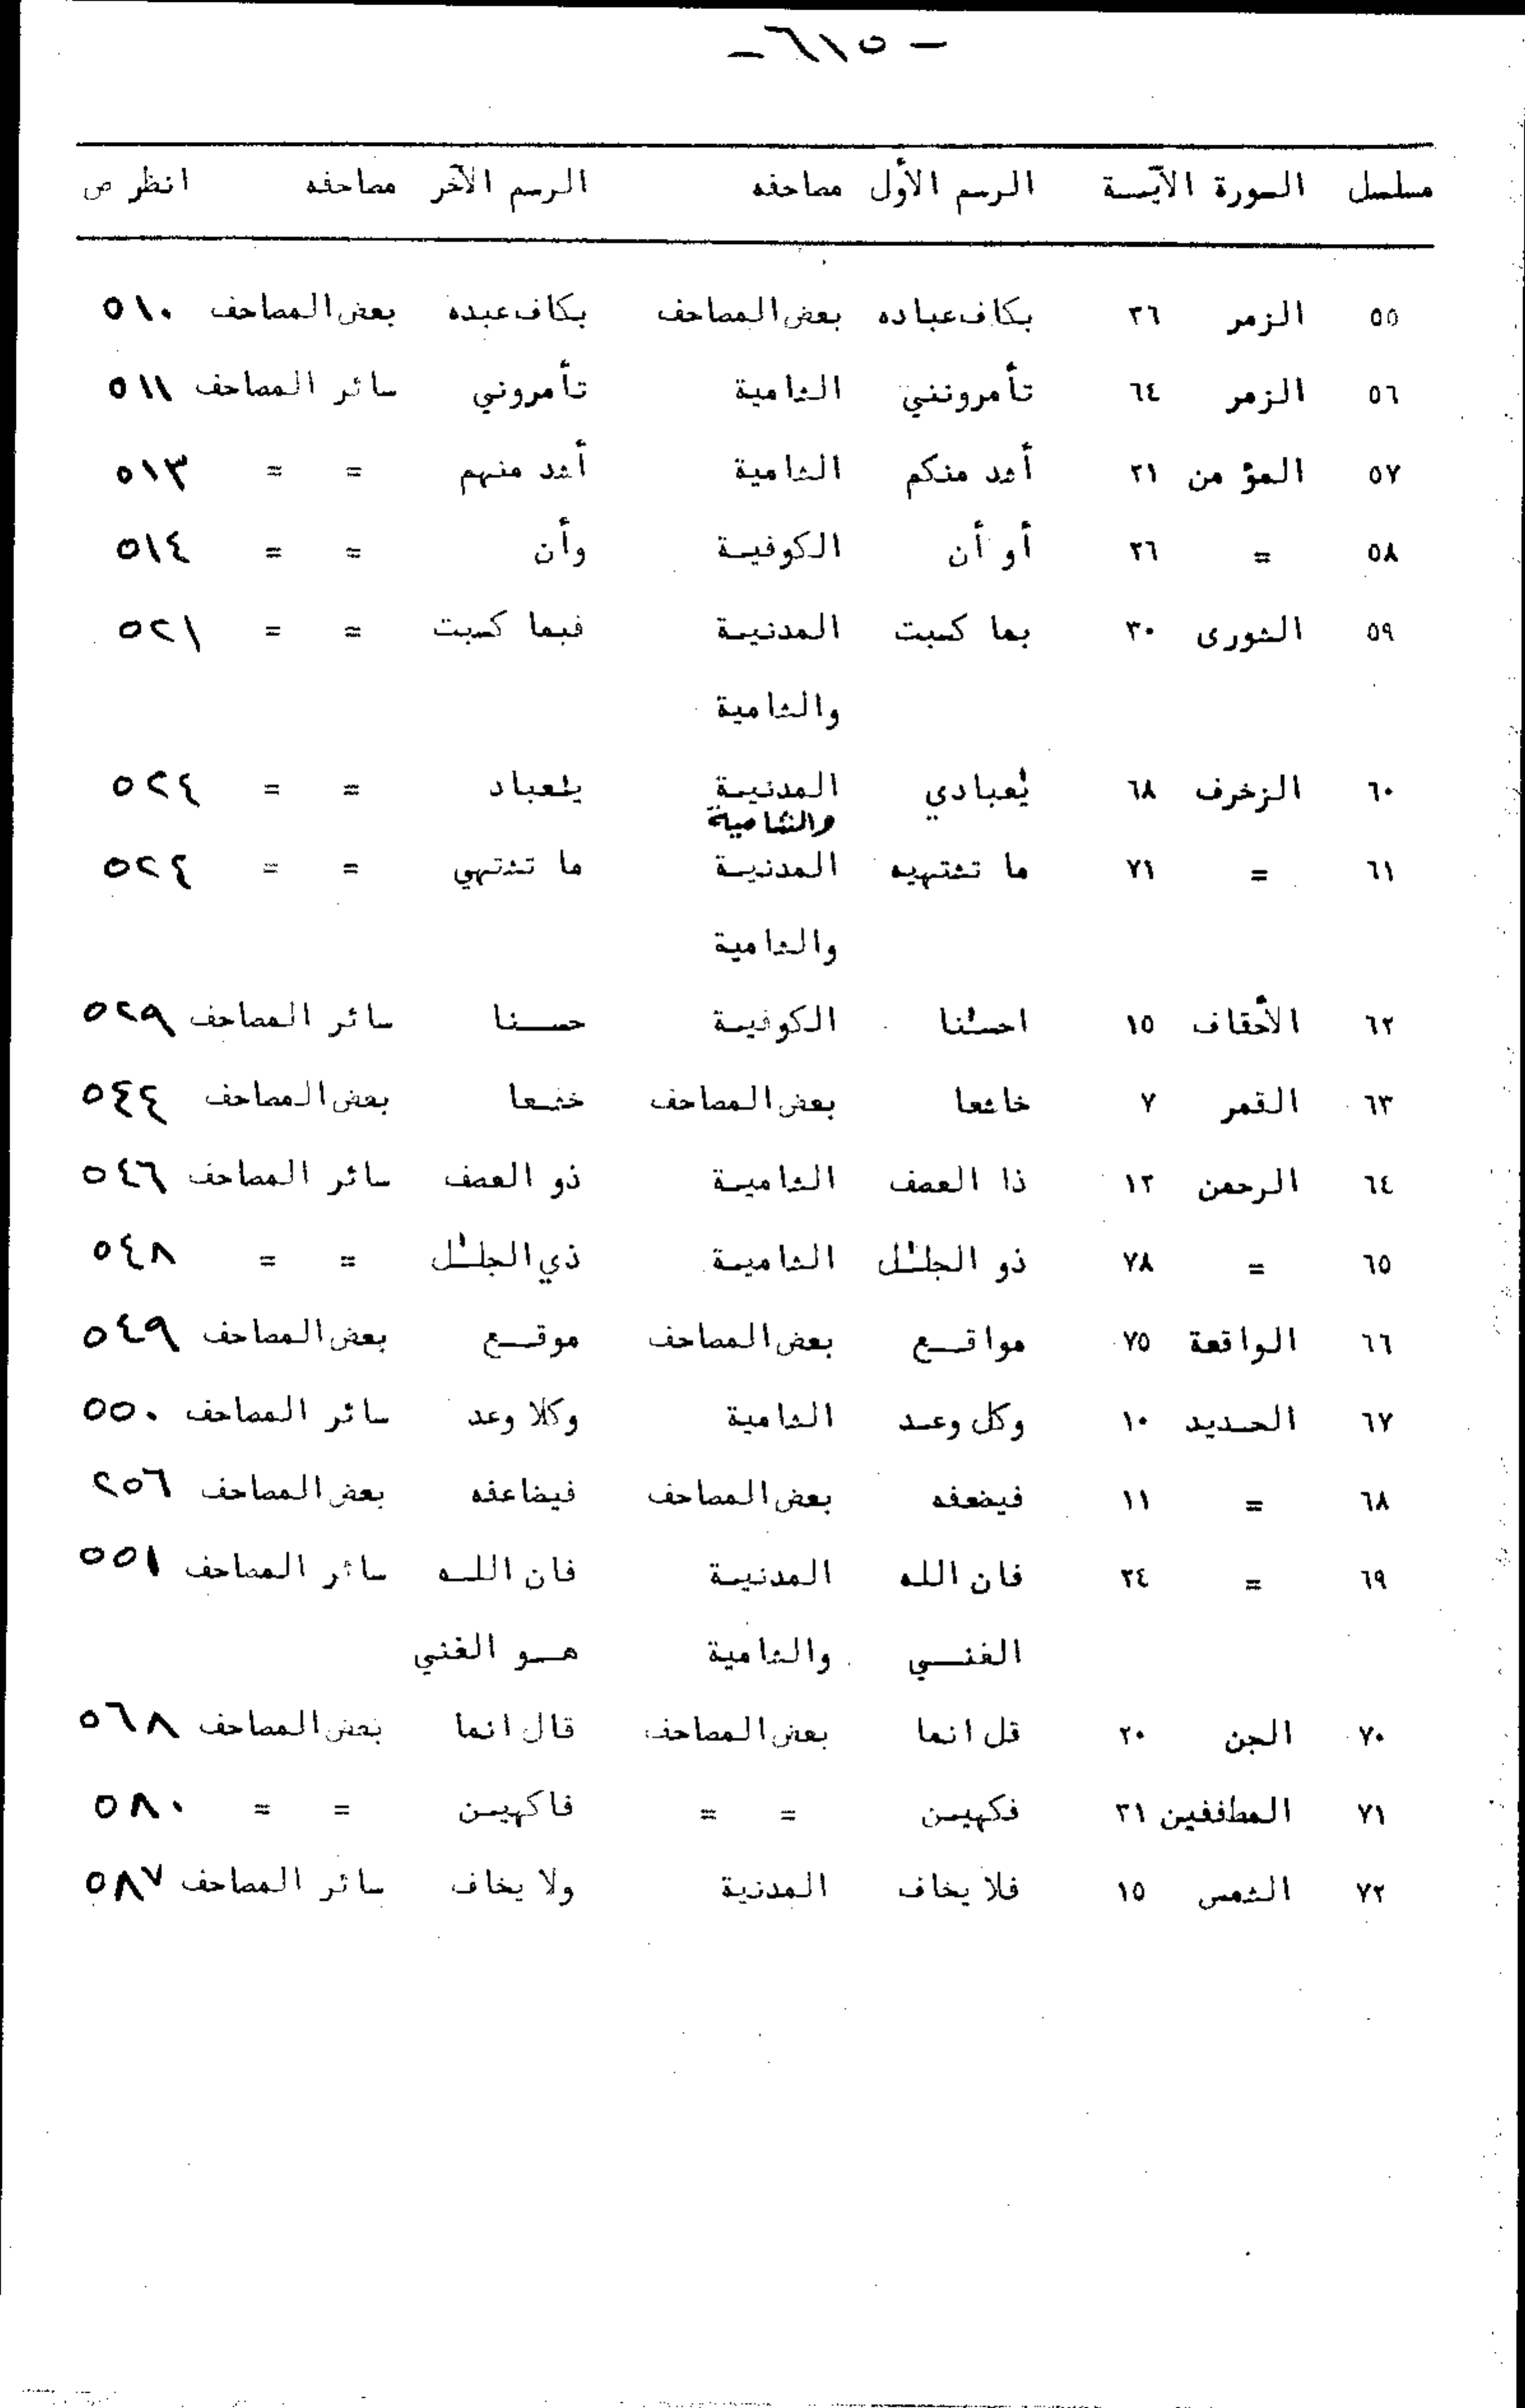 - ٦١٥ -
مسلسل السورة الآيسة الرسم الأول مصاحفه الرسم الآخر مصاحفه انظر ص
٥٥ الزمر ٣٦ بكاف عباده بعض المصاحف بكاف عبده بعض المصاحف ٥١٠
٥٦ الزمر ٦٤ تأمرونني الشامية تأمروني سائر المصاحف ٥١١
٥٧ المؤ من ٢١ أشد منكم الشامية أشد منهم = = ٥١٣
٥٨ = ٢٦ أو أن الكوفيـة وأن = = ٥١٤
٥٩ الشورى ٣٠ بما كسبت المدنيـة فبما كسبت = = ٥٢١
والشامية
٦٠ الزخرف ٦٨ يٰعبادي المدنيـة يٰعباد = = ٥٢٤
والشامية
٦١ = ٧١ ما تشتهيه المدنيـة ما تشتهي = = ٥٢٤
والشامية
٦٢ الأحقاف ١٥ احسٰنا الكوفيـة حسـنا سائر المصاحف ٥٢٩
٦٣ القمر ٧ خاشعا بعض المصاحف خشـعا بعض المصاحف ٥٤٤
٦٤ الرحمن ١٢ ذا العصف الشاميـة ذو العصف سائر المصاحف ٥٤٦
٦٥ = ٧٨ ذو الجلٰل الشاميـة ذي الجلٰل = = ٥٤٨
٦٦ الواقعة ٧٥ مواقـع بعض المصاحف موقـع بعض المصاحف ٥٤٩
٦٧ الحـديد ١٠ وكل وعـد الشامية وكلا وعد سائر المصاحف ٥٥٠
٦٨ = ١١ فيضعفه بعض المصاحف فيضاعفه بعض المصاحف ٢٥٦
٦٩ = ٢٤ فان الله المدنيـة فان اللـه سائر المصاحف ٥٥١
الغنـي والشامية هـو الغني
٧٠ الجن ٢٠ قل انما بعض المصاحف قال انما بعض المصاحف ٥٦٨
٧١ المطففين ٣١ فكهيـن = = فاكهيـن = = ٥٨٠
٧٢ الشمس ١٥ فلا يخاف المدنية ولا يخاف سائر المصاحف ٥٨٧